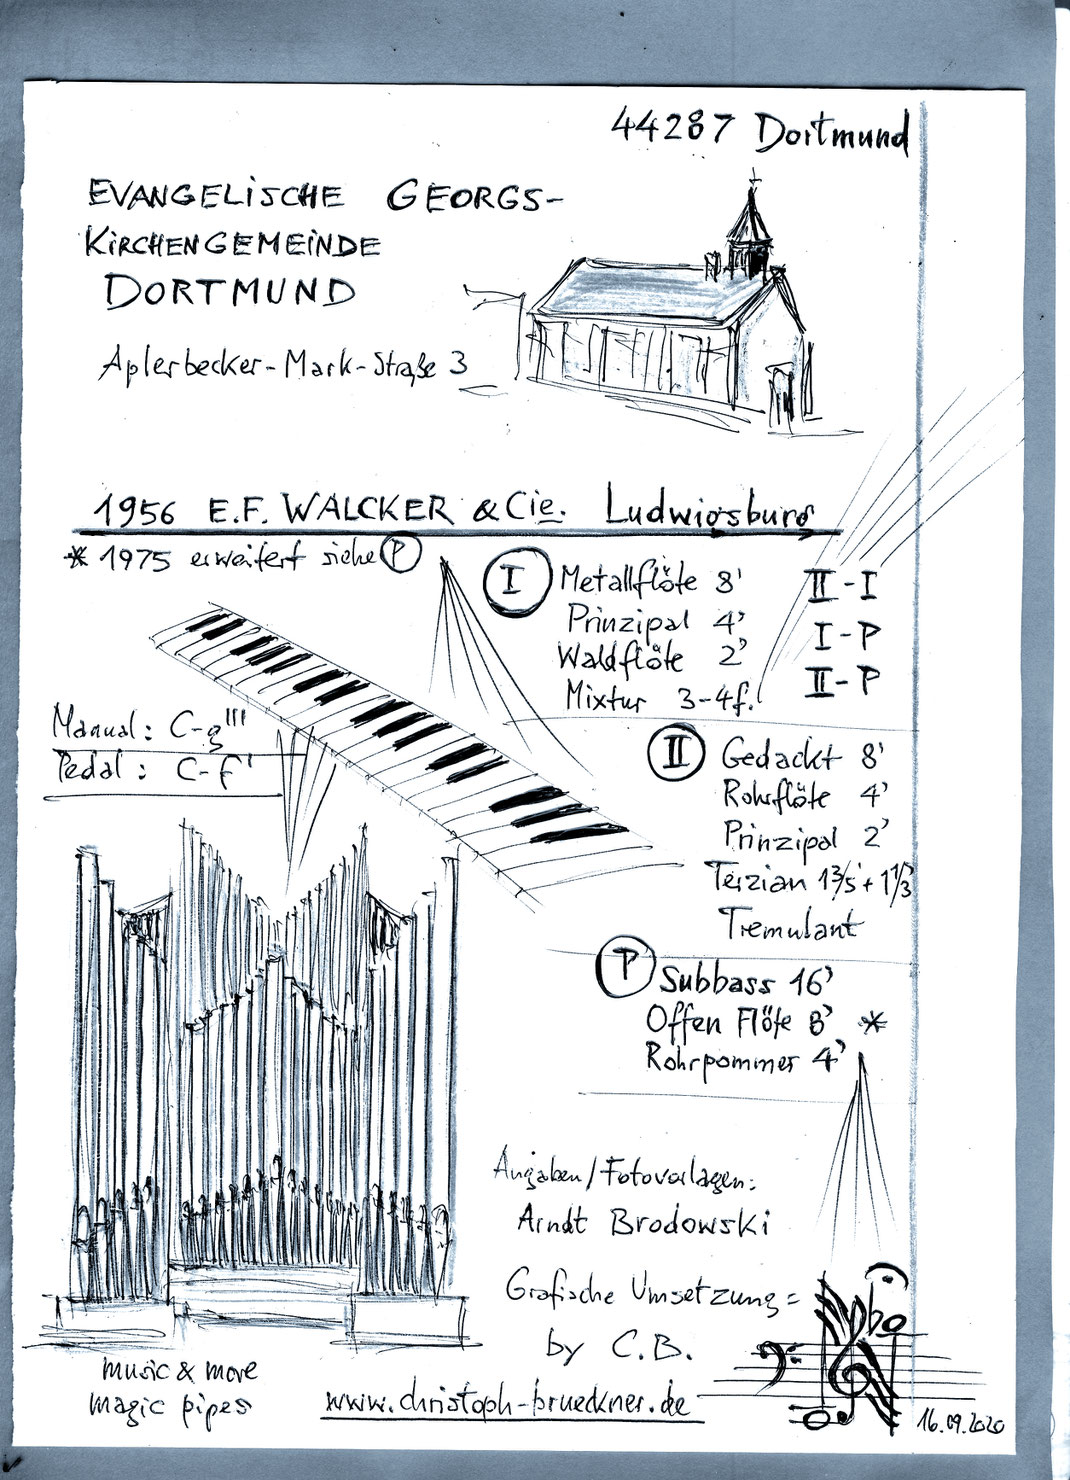 44287 Dortmund
EVANGELISCHE GEORGS-
KIRCHENGEMEINDE
DORTMUND
Aplerbecker-Mark-Straße 3
1956 E.F. WALCKER & Cie. Ludwigsburg
* 1975 erweitert siehe P
I Metallflöte 8'
Prinzipal 4'
Waldflöte 2'
Mixtur 3-4f.
II-I
I-P
II-P
Manual: C-g'''
Pedal: C-f'
II Gedackt 8'
Rohrflöte 4'
Prinzipal 2'
Terzian 1 3/5' + 1 1/3'
Tremulant
P Subbass 16'
Offen Flöte 8' *
Rohrpommer 4'
Angaben/Fotovorlagen:
Arndt Brodowski
Grafische Umsetzung =
by C.B.
music & more
magic pipes
www.christoph-brueckner.de
16.09.2020